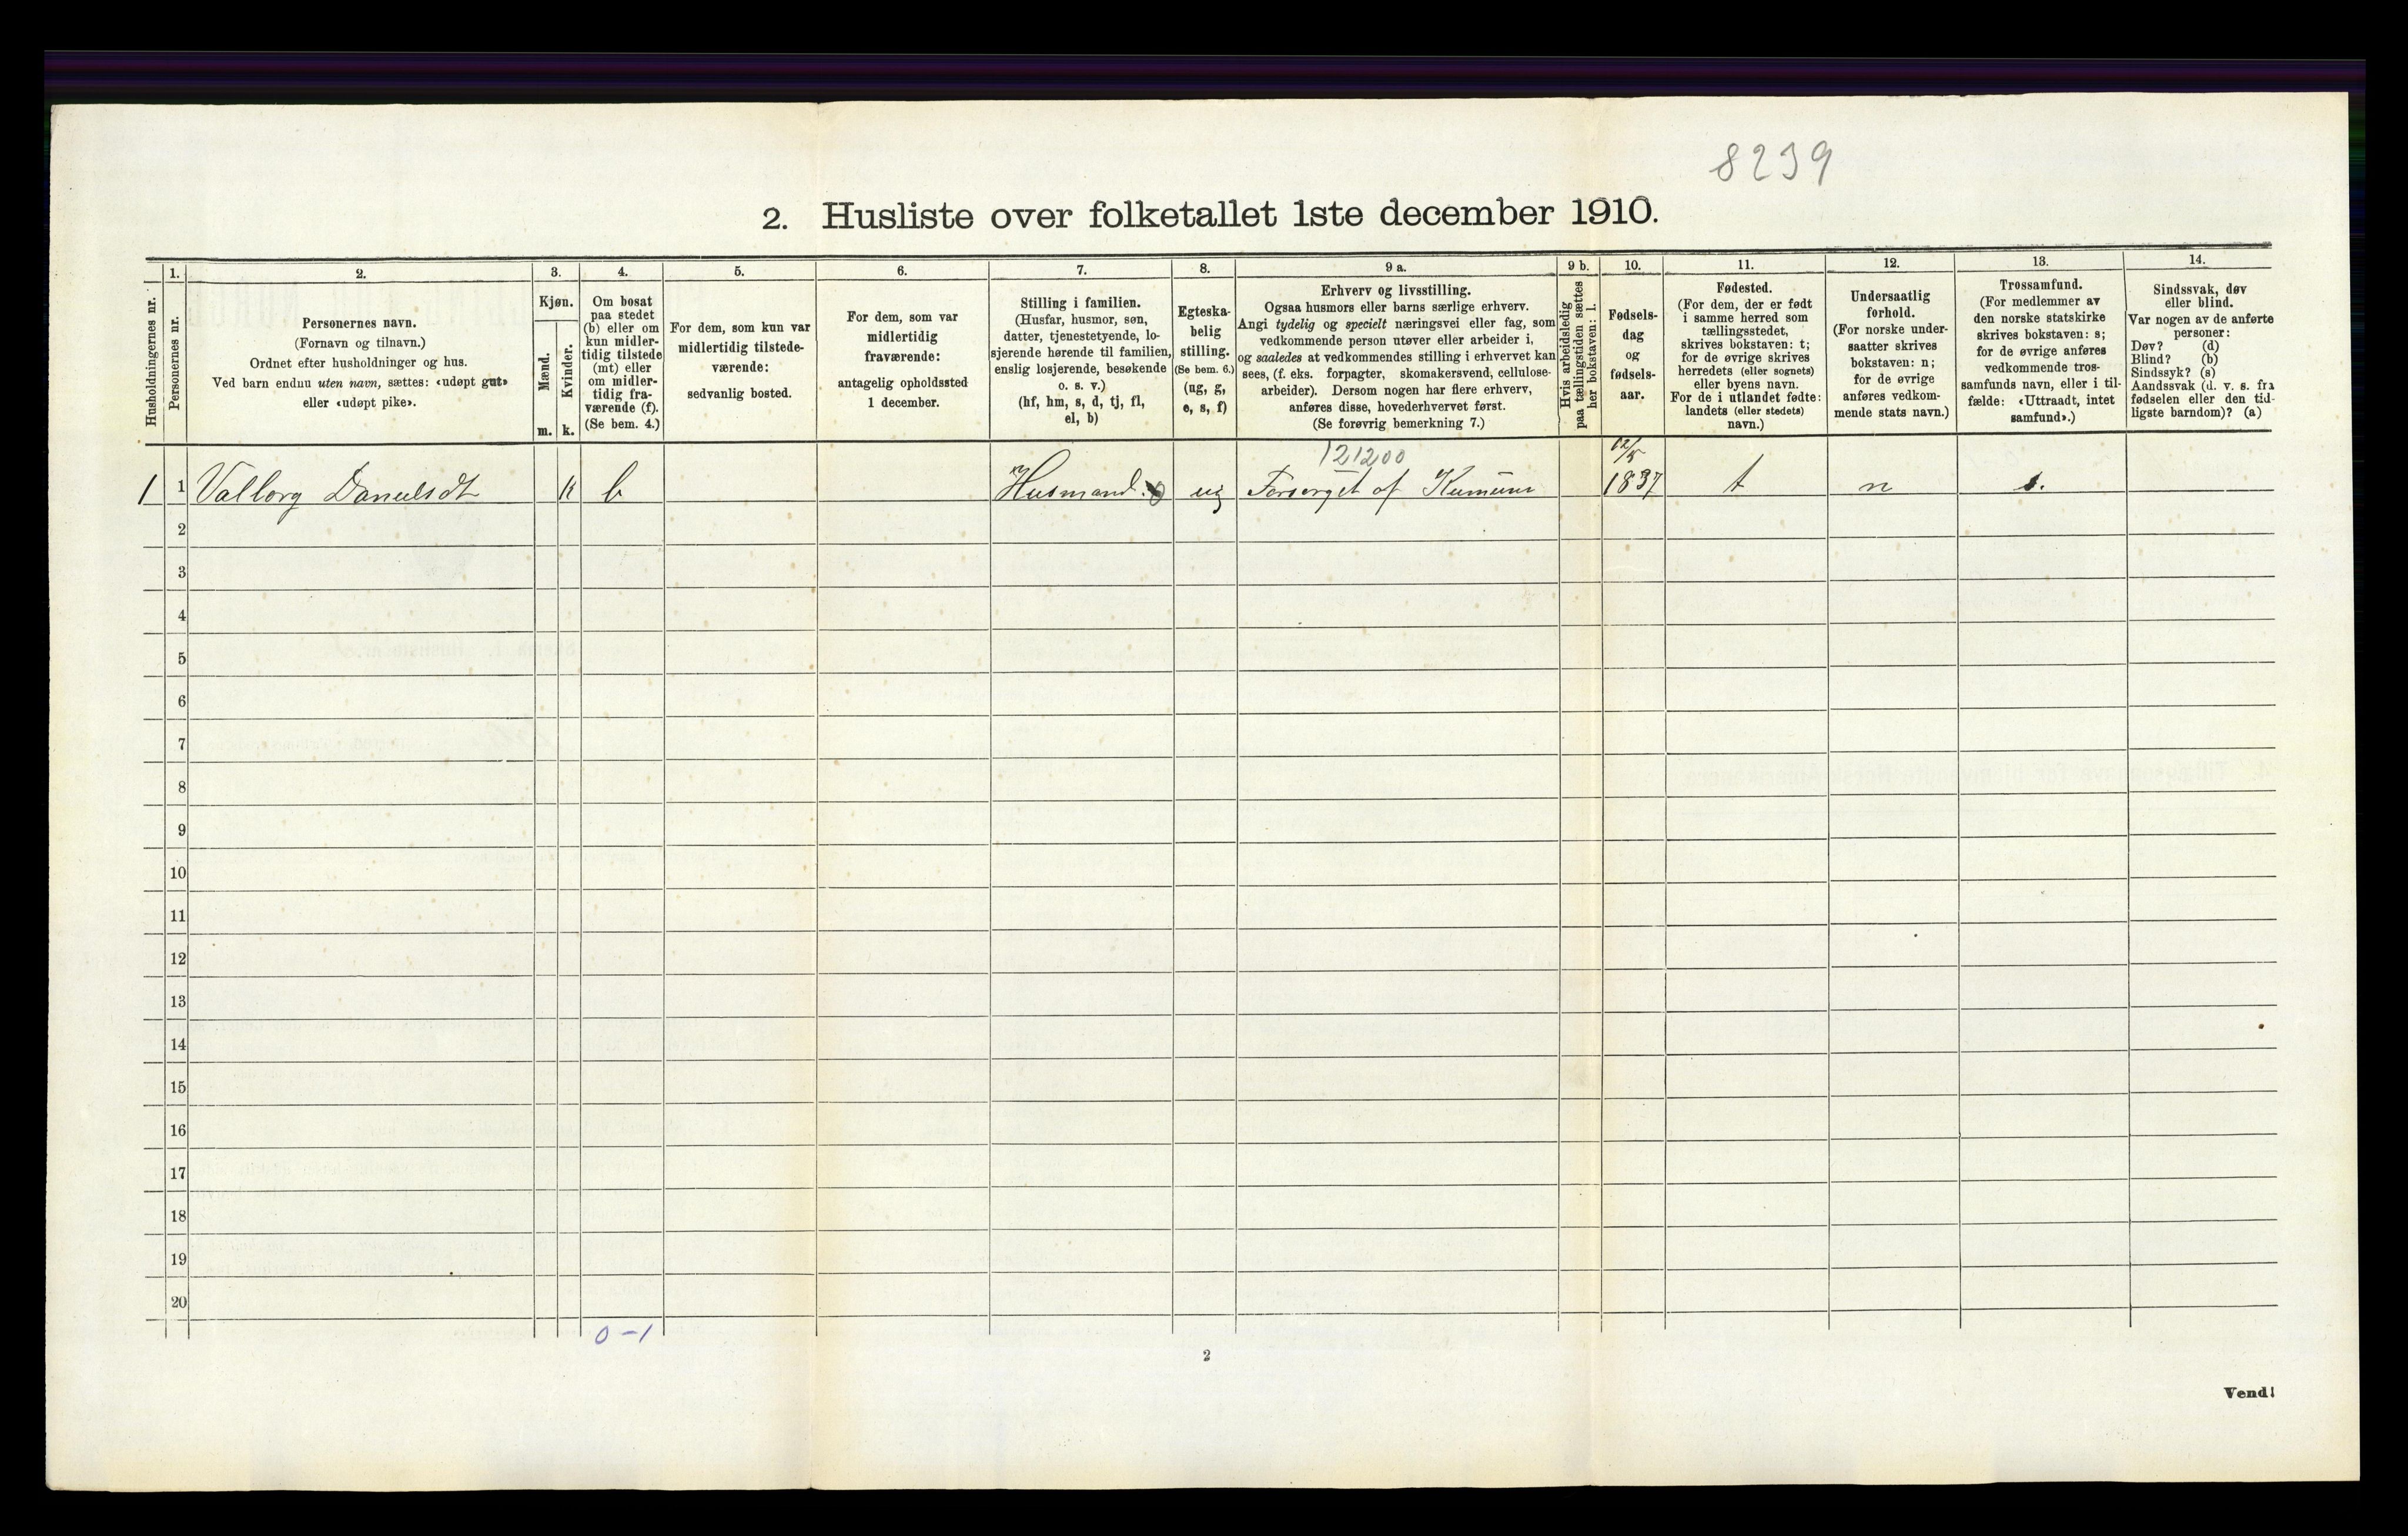 8239
2. Husliste over folketallet 1ste december 1910.
Husholdningernes nr.
1.
Personernes nr.
2.
Personernes navn.
(Fornavn og tilnavn.)
Ordnet efter husholdninger og hus.
Ved barn endnu uten navn, sættes: «udøpt gut»
eller «udøpt pike».
3.
Kjøn.
Mænd.
Kvinder.
m. k.
4.
Om bosat
paa stedet
(b) eller om
kun midler-
tidig tilstede
(mt) eller
om midler-
tidig fra-
værende (f).
(Se bem. 4.)
5.
For dem, som kun var
midlertidig tilstede-
værende:
sedvanlig bosted.
6.
For dem, som var
midlertidig
fraværende:
antagelig opholdssted
1 december.
7.
Stilling i familien.
(Husfar, husmor, søn,
datter, tjenestetyende, lo-
sjerende hørende til familien,
enslig losjerende, besøkende
o. s. v.)
(hf, hm, s, d, tj, fl,
el, b)
8.
Egteska-
belig
stilling.
(Se bem. 6.)
(ug, g,
e, s, f)
9 a.
Erhverv og livsstilling.
Ogsaa husmors eller barns særlige erhverv.
Angi tydelig og specielt næringsvei eller fag, som
vedkommende person utøver eller arbeider i,
og saaledes at vedkommendes stilling i erhvervet kan
sees, (f. eks. forpagter, skomakersvend, cellulose-
arbeider). Dersom nogen har flere erhverv,
anføres disse, hovederhvervet først.
(Se forøvrig bemerkning 7.)
9 b.
Hvis arbeidsledig
paa tællingstiden sættes
her bokstaven: l.
10.
Fødsels-
dag
og
fødsels-
aar.
11.
Fødested.
(For dem, der er født
i samme herred som
tællingsstedet,
skrives bokstaven: t;
for de øvrige skrives
herredets (eller sognets)
eller byens navn.
For de i utlandet fødte:
landets (eller stedets)
navn.)
12.
Undersaatlig
forhold.
(For norske under-
saatter skrives
bokstaven: n;
for de øvrige
anføres vedkom-
mende stats navn.)
13.
Trossamfund.
(For medlemmer av
den norske statskirke
skrives bokstaven: s;
for de øvrige anføres
vedkommende tros-
samfunds navn, eller i til-
fælde: «Uttraadt, intet
samfund».)
14.
Sindssvak, døv
eller blind.
Var nogen av de anførte
personer:
Døv? (d)
Blind? (b)
Sindssyk? (s)
Aandssvak (d. v. s. fra
fødselen eller den tid-
ligste barndom)? (a)
121200
12/5
1 1 Valborg Danielsdt k b Husmand. ug Forsørget af Kumune 1837 t n s.
2
3
4
5
6
7
8
9
10
11
12
13
14
15
16
17
18
19
20
0-1
2
Vend!